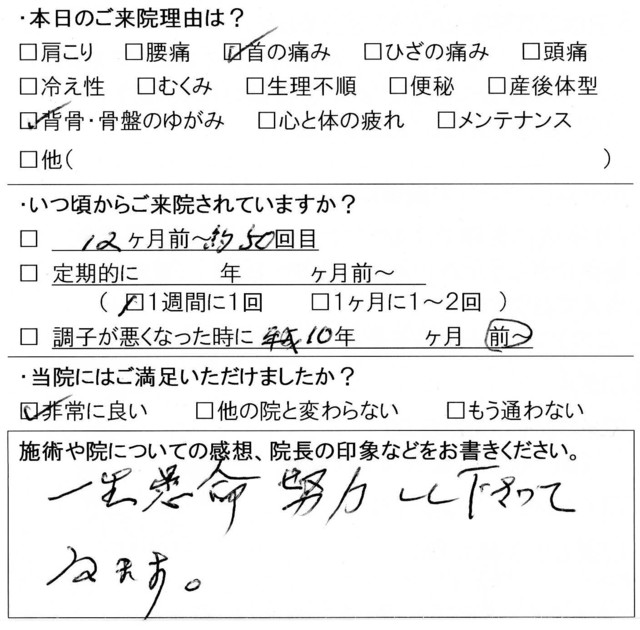 ・本日のご来院理由は？
□肩こり □腰痛 ☑首の痛み □ひざの痛み □頭痛
□冷え性 □むくみ □生理不順 □便秘 □産後体型
☑背骨・骨盤のゆがみ □心と体の疲れ □メンテナンス
□他（ ）
・いつ頃からご来院されていますか？
□ 12ヶ月前～約50回目
□ 定期的に 年 ヶ月前～
（ ☑1週間に1回 □1ヶ月に1～2回 ）
□ 調子が悪くなった時に 平成10年 ヶ月 前～
・当院にはご満足いただけましたか？
☑非常に良い □他の院と変わらない □もう通わない
施術や院についての感想、院長の印象などをお書きください。
一生懸命 努力して下さって
ます。